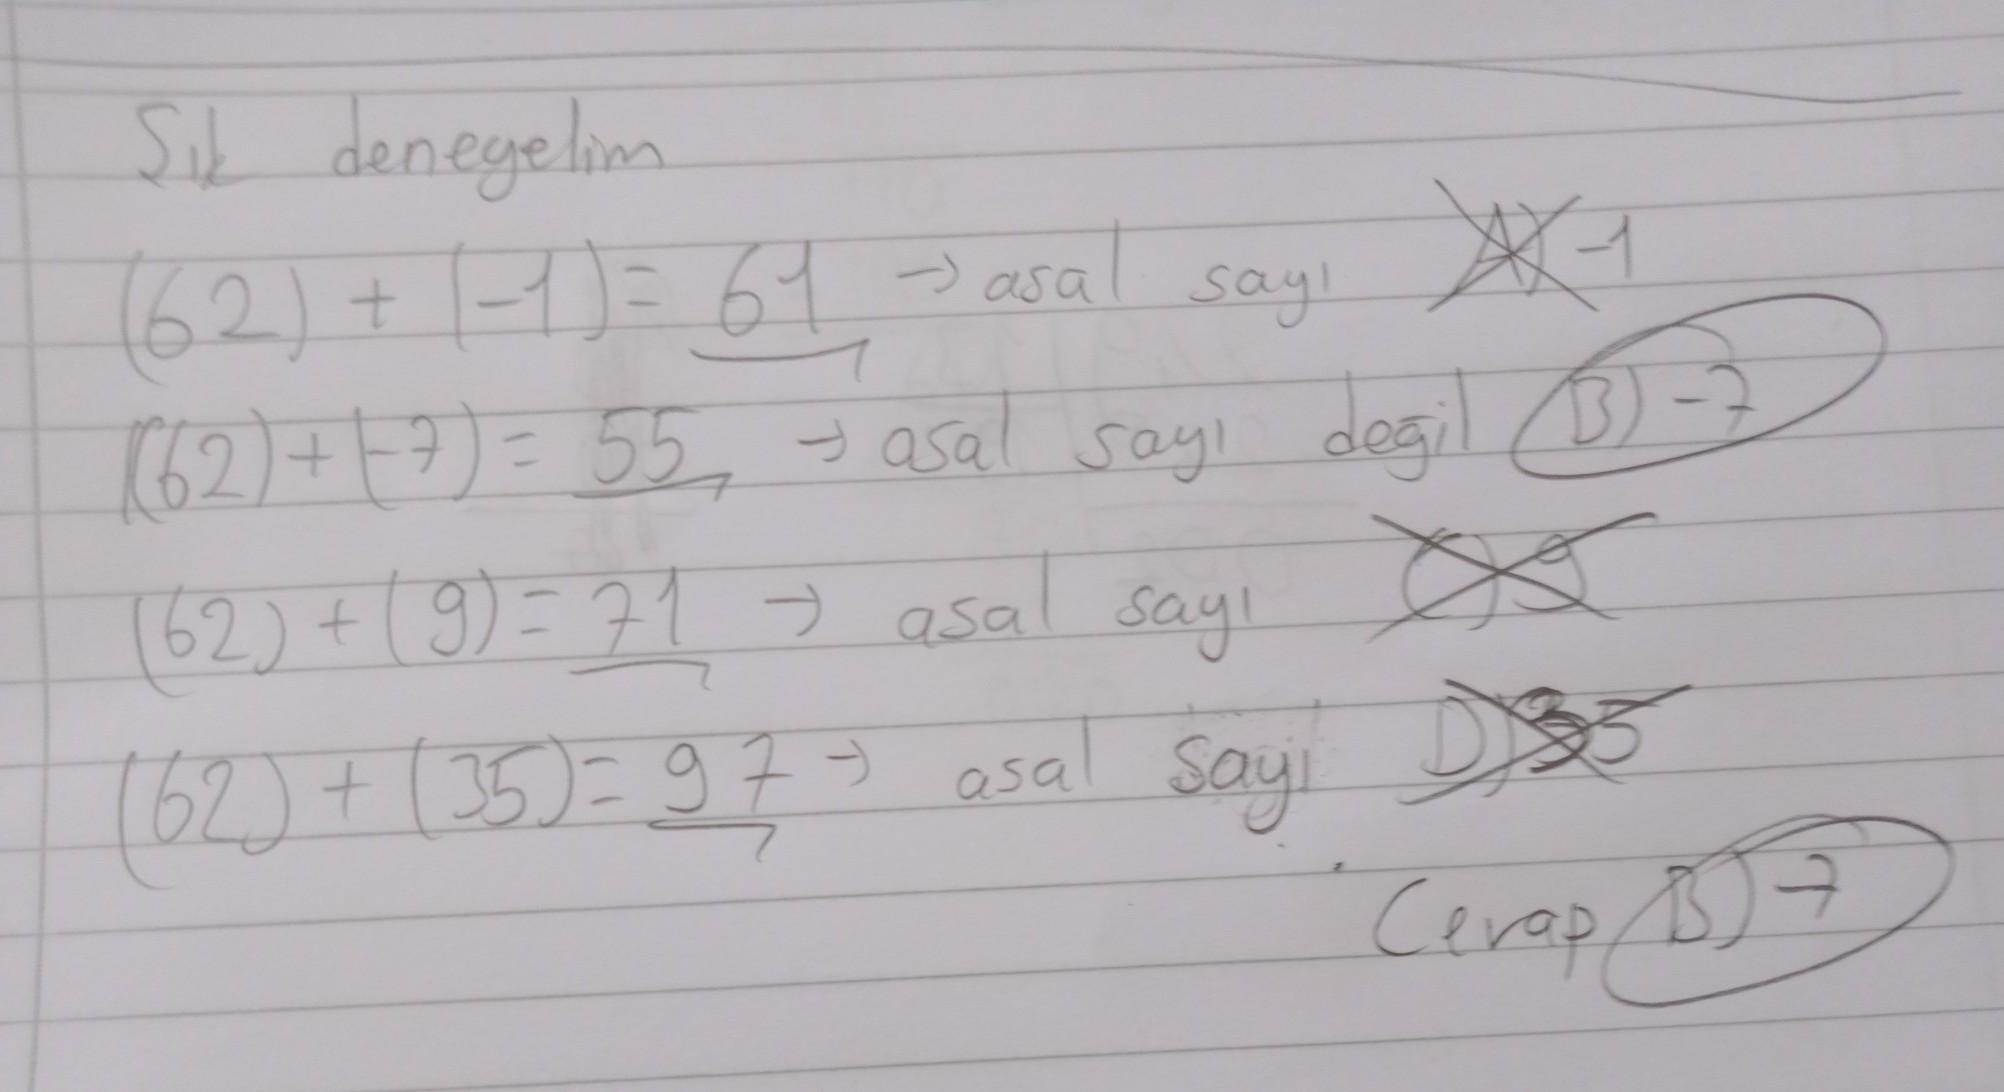 Şık deneyelim
(62) + (-1) = 61 → asal sayı A) -1
(62) + (-7) = 55 → asal sayı değil B) -7
(62) + (9) = 71 → asal sayı C) 9
(62) + (35) = 97 → asal sayı D) 35
Cevap B) -7